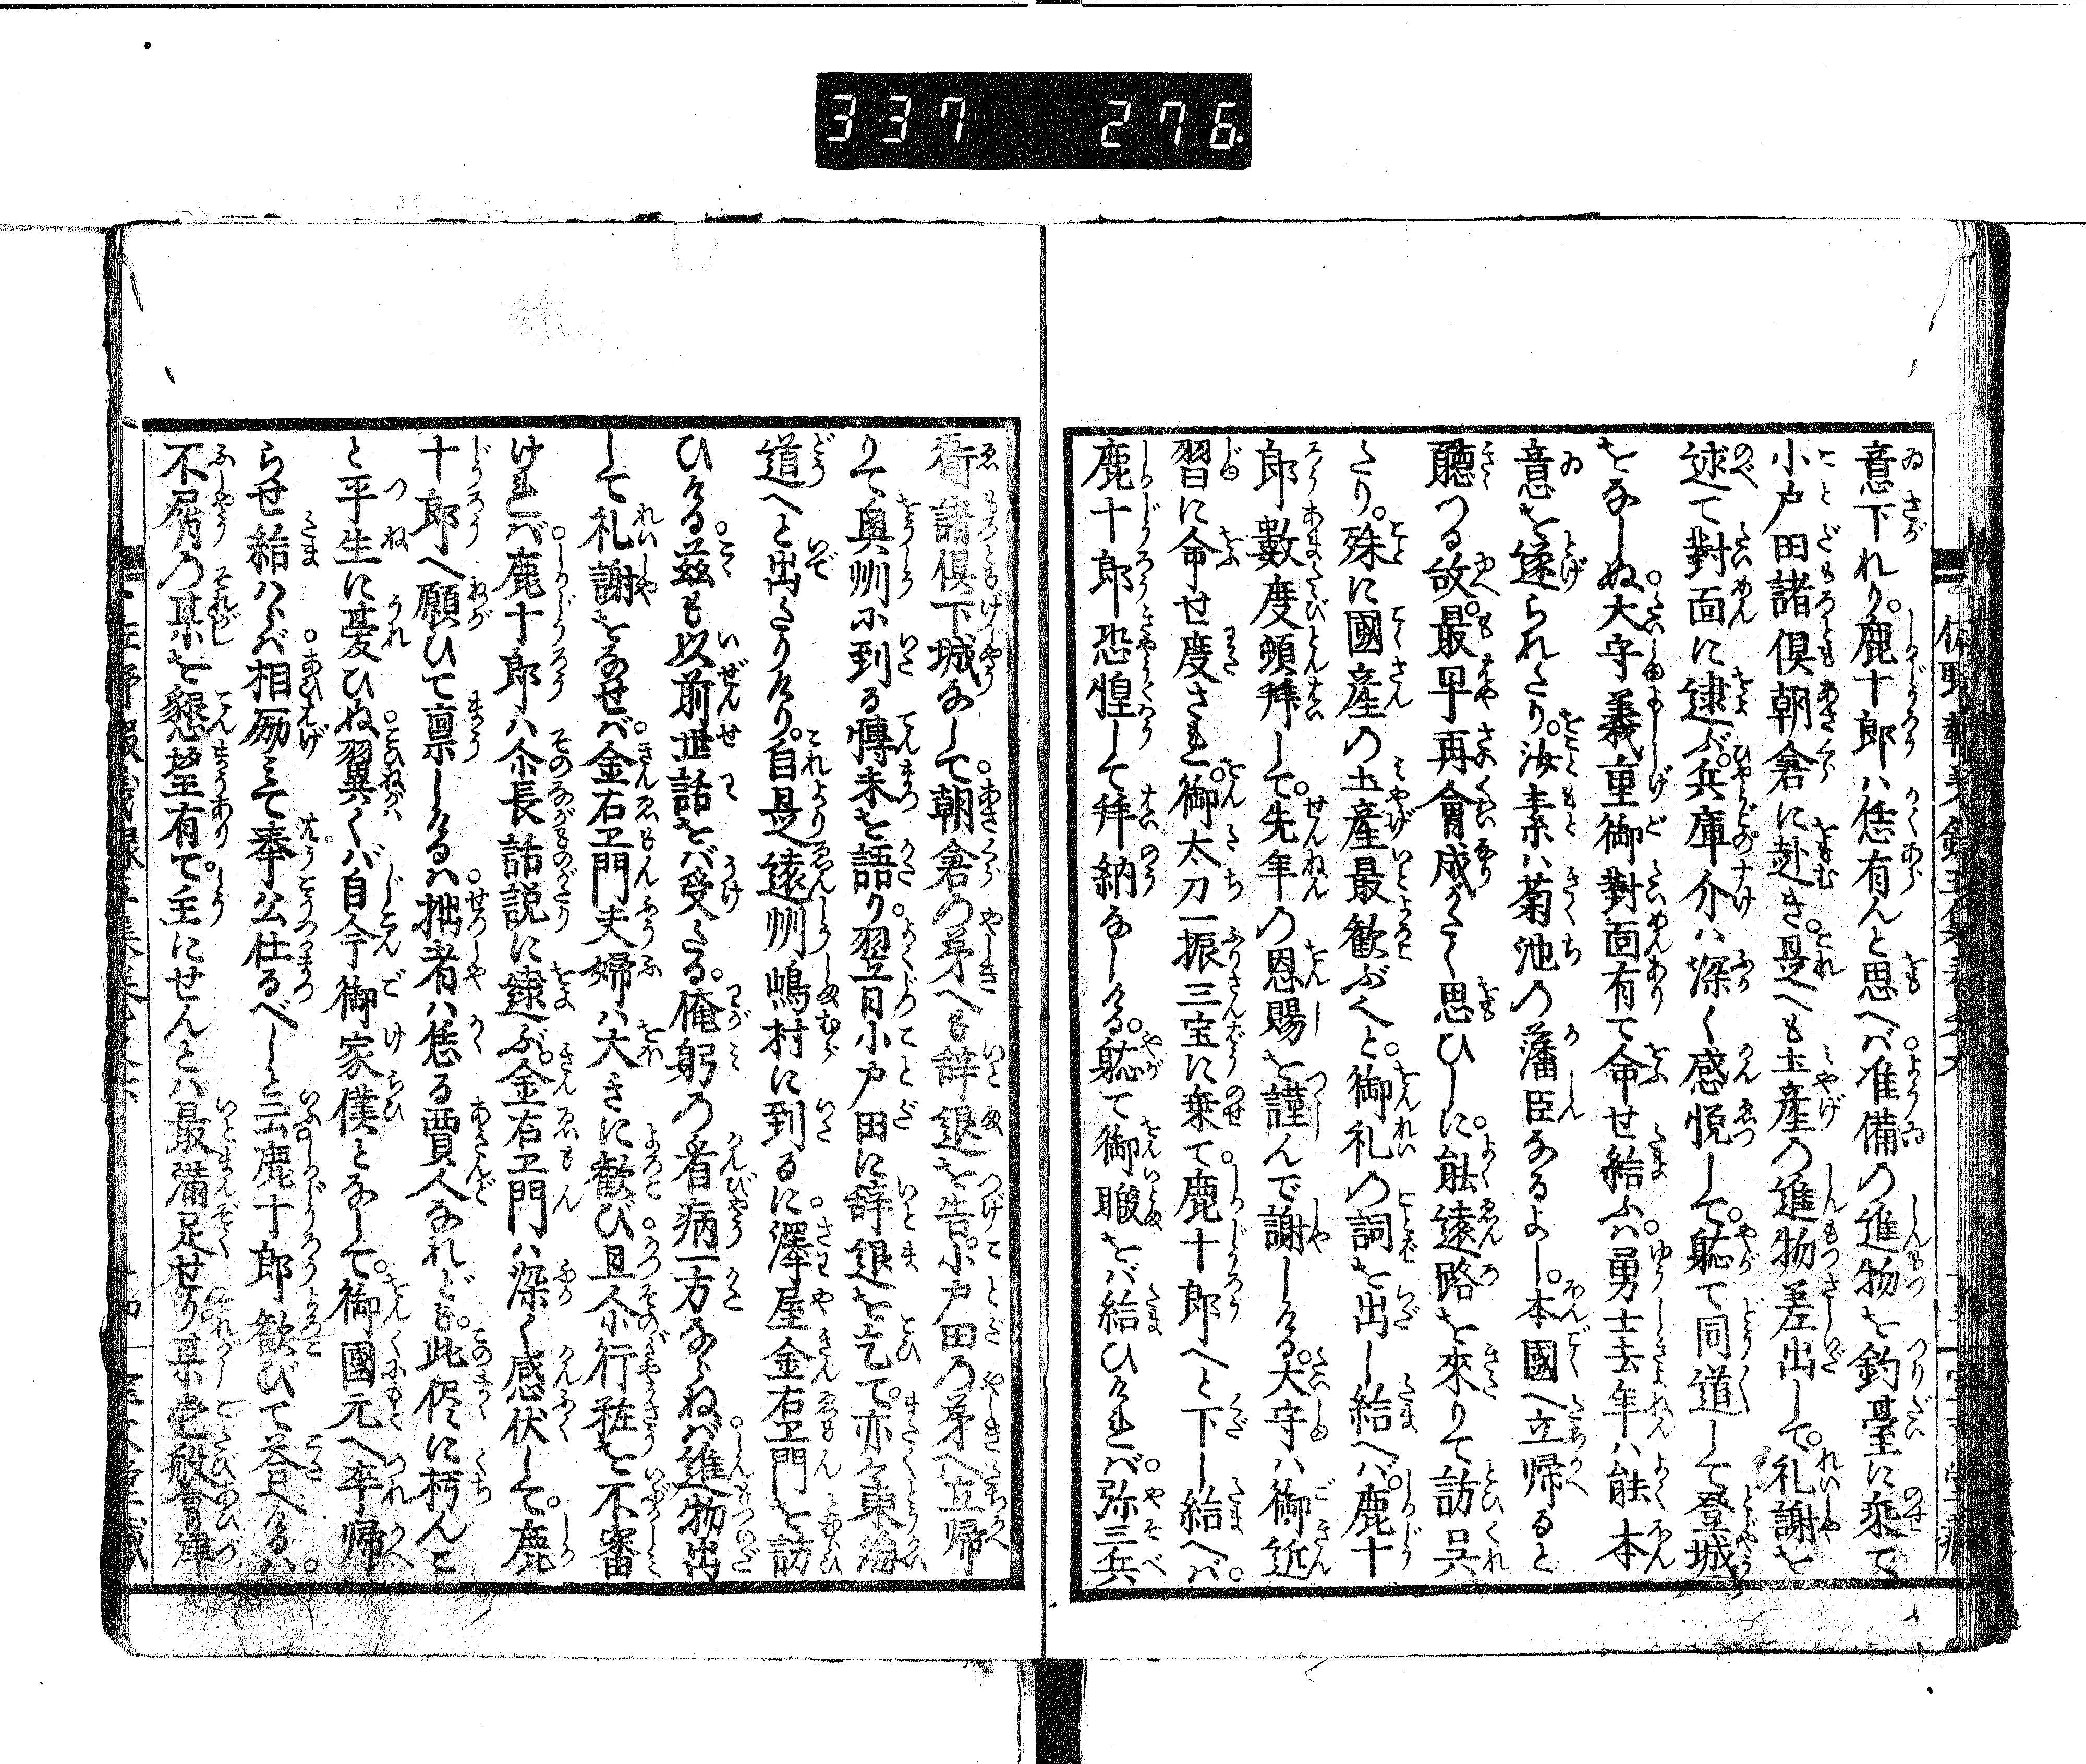 337 276
意下れり。鹿十郎ハ恁有んと思へバ准備の進物を釣臺に乗て
小戸田諸倶朝倉に赴き。是へも土産の進物差出して。礼謝を
述て對面に逮ぶ。兵庫介ハ深く感悦して。軈て同道して登城
をなしぬ。大守義重御對面有て命せ給ふハ。勇士去年ハ能本
意を遂られたり。汝素ハ菊池の藩臣なるよし。本國へ立帰ると
聴つる故。最早再會成がたく思ひしに。能遠路を來りて訪呉
たり。殊に國産の土産最歓ぶくと。御礼の詞を出し給へバ。鹿十
郎數度頓拜して。先年の恩賜を謹んで謝しける。大守ハ御近
習に命せ度され。御太刀一振三宝に乗て。鹿十郎へと下し給へバ。
鹿十郎恐惶して拜納なしける。軈て御暇をバ給ひけれバ。弥三兵
衛諸倶下城なして。朝倉の第へも辞退を告。小戸田の第へ立帰
りて奥州に到る顛末を語り。翌日小戸田に辞退を乞て。亦々東海
道へと出たりけり。自是遠州嶋村に到るに。澤屋金右エ門を訪
ひける。茲も以前世話をバ受たる。俺躬の看病一方ならねバ。進物出
して礼謝をなせバ。金右エ門夫婦ハ大きに歓び。且尒行粧を不審
けれバ。鹿十郎ハ尒長話説に逮ぶ。金右エ門ハ深く感伏して。鹿
十郎へ願ひて稟しけるハ。拙者ハ恁る賈人なれども。此侭に朽んこ
と平生に憂ひぬ。冀くバ自今御家僕となして。御國元へ卒帰
らせ給ハらバ。相励みて奉公仕るべしと云。鹿十郎歓びて答へけるハ。
不屑の某を懇望有て。主にせんとハ最満足せり。某壱般會津